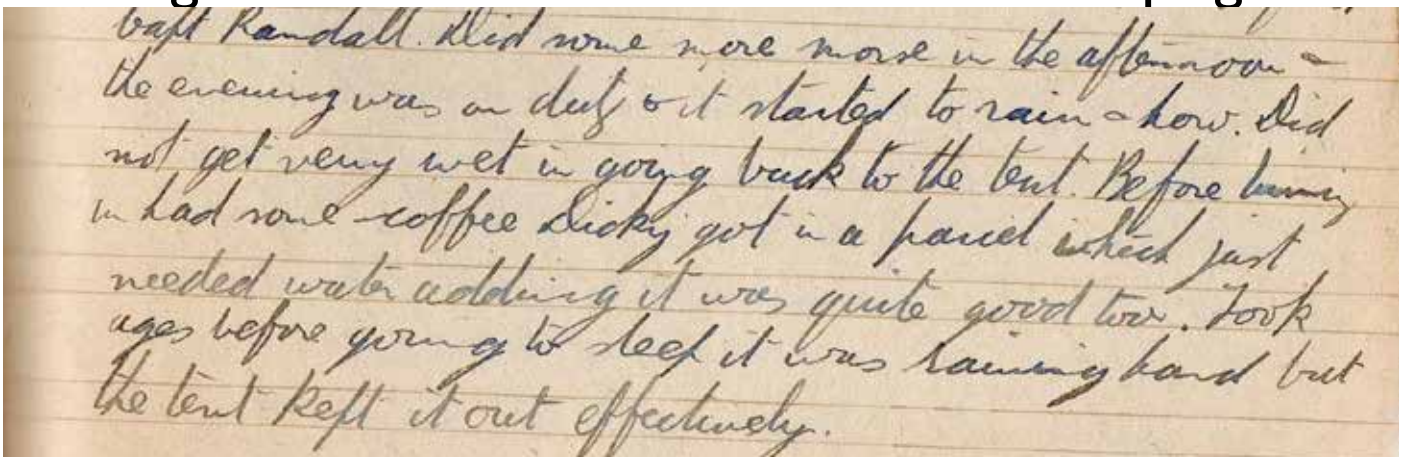 Capt Randall. Did some more morse in the afternoon -
the evening was on duty & it started to rain - how. Did
not get very wet in going back to the tent. Before turning
in had some coffee Dicky got in a parcel which just
needed water adding it was quite good too. Took
ages before going to sleep it was raining hard but
the tent kept it out effectively.